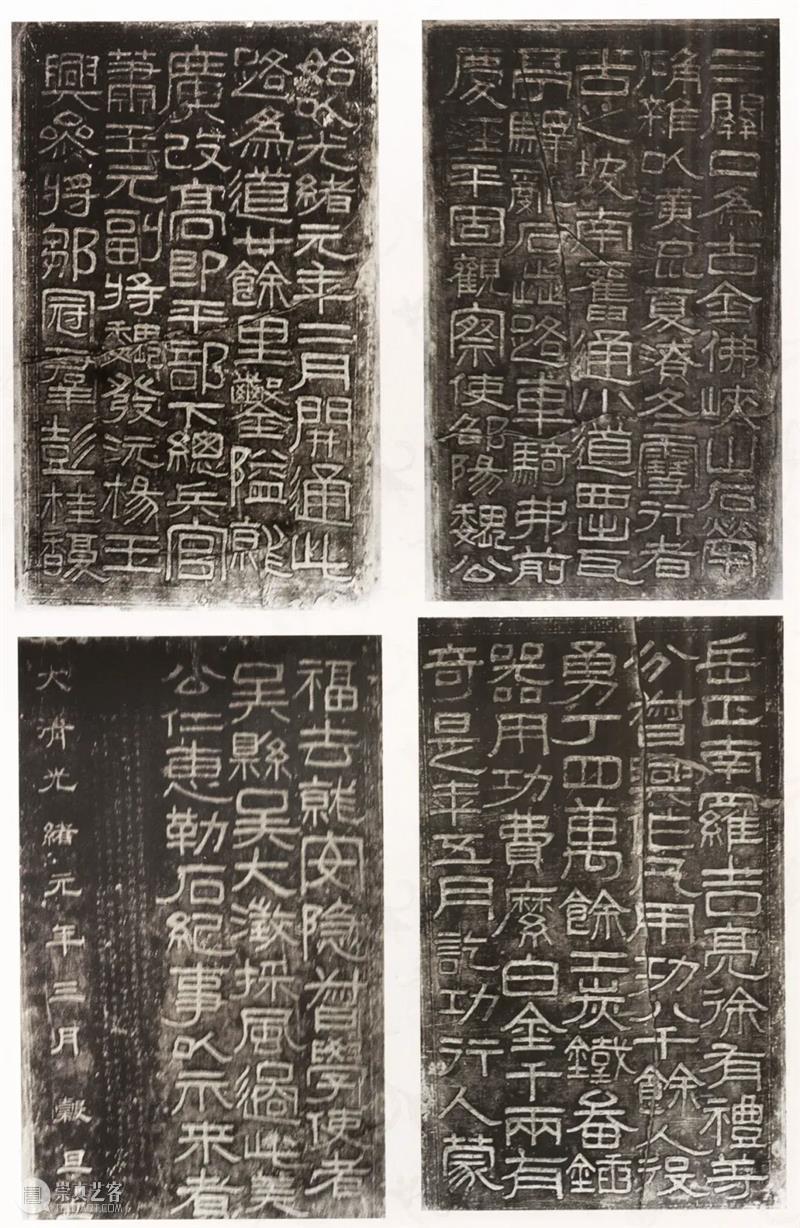 三關口為古金佛峽山石犖
确雜以潢流夏潦冬雪行者
苦之坡南舊通小道西出瓦
亭驛亂石路車騎弗前
慶涇平固觀察使邵陽魏公
始以光緒元年二月開通此
路為道廿餘里鑿隘就
廣改高即平部下總兵官
蕭玉元副將魏發沅楊玉
興參將鄒冠羣彭桂馥
岳正南羅吉亮徐有禮等
分督興作凡用功八千餘人役
勇丁四萬餘工炭鐵畚鍤
器用功費縻白金千兩有
奇是年五月訖功行人蒙
福去就安隱督學使者
吳縣吳大澂採風過此美
公仁惠勒石紀事以示来者
大清光緒元年三月 穀旦
崇真艺客